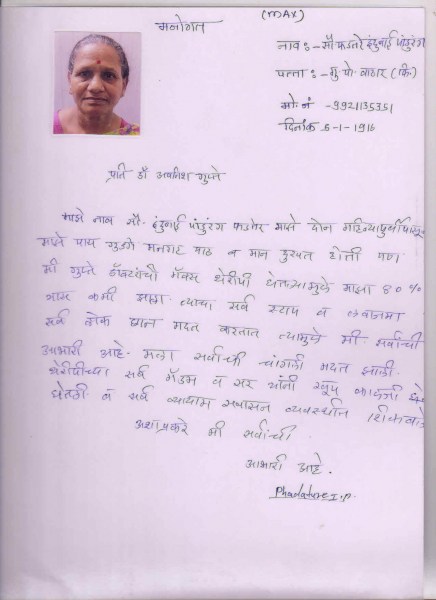 (MAX)
मनोगत
नाव :- सौ फडतरे इंदुबाई पांडुरंग
पत्ता :- मु पो. वाठार (कि.)
मो. नं - 9921135351
दिनांक 6-1-1916
प्रति डॉ अवनिश गुप्ते
माझे नाव सौ. इंदुबाई पांडुरंग फडतरे माझे दोन महिन्यापुर्वीपासून
माझे पाय गुडघे मनगट पाठ व मान दुखत होती पण
मी गुप्ते डॉक्टरांची मॅक्स थेरीपी घेतल्यामुळे माझा 80%
त्रास कमी झाला. त्याचा सर्व स्टाप व
सर्व लोक छान मदत करतात त्यामुळे मी सर्वांची
आभारी आहे. मला सर्वांची चांगली मदत झाली.
थेरीपीच्या सर्व मॅडम व सर यांनी खूप काळजी
घेतली व सर्व व्यायाम सवासन व्यवस्थीत
अशाप्रकारे मी सर्वांची
आभारी आहे.
Phadature I.P.